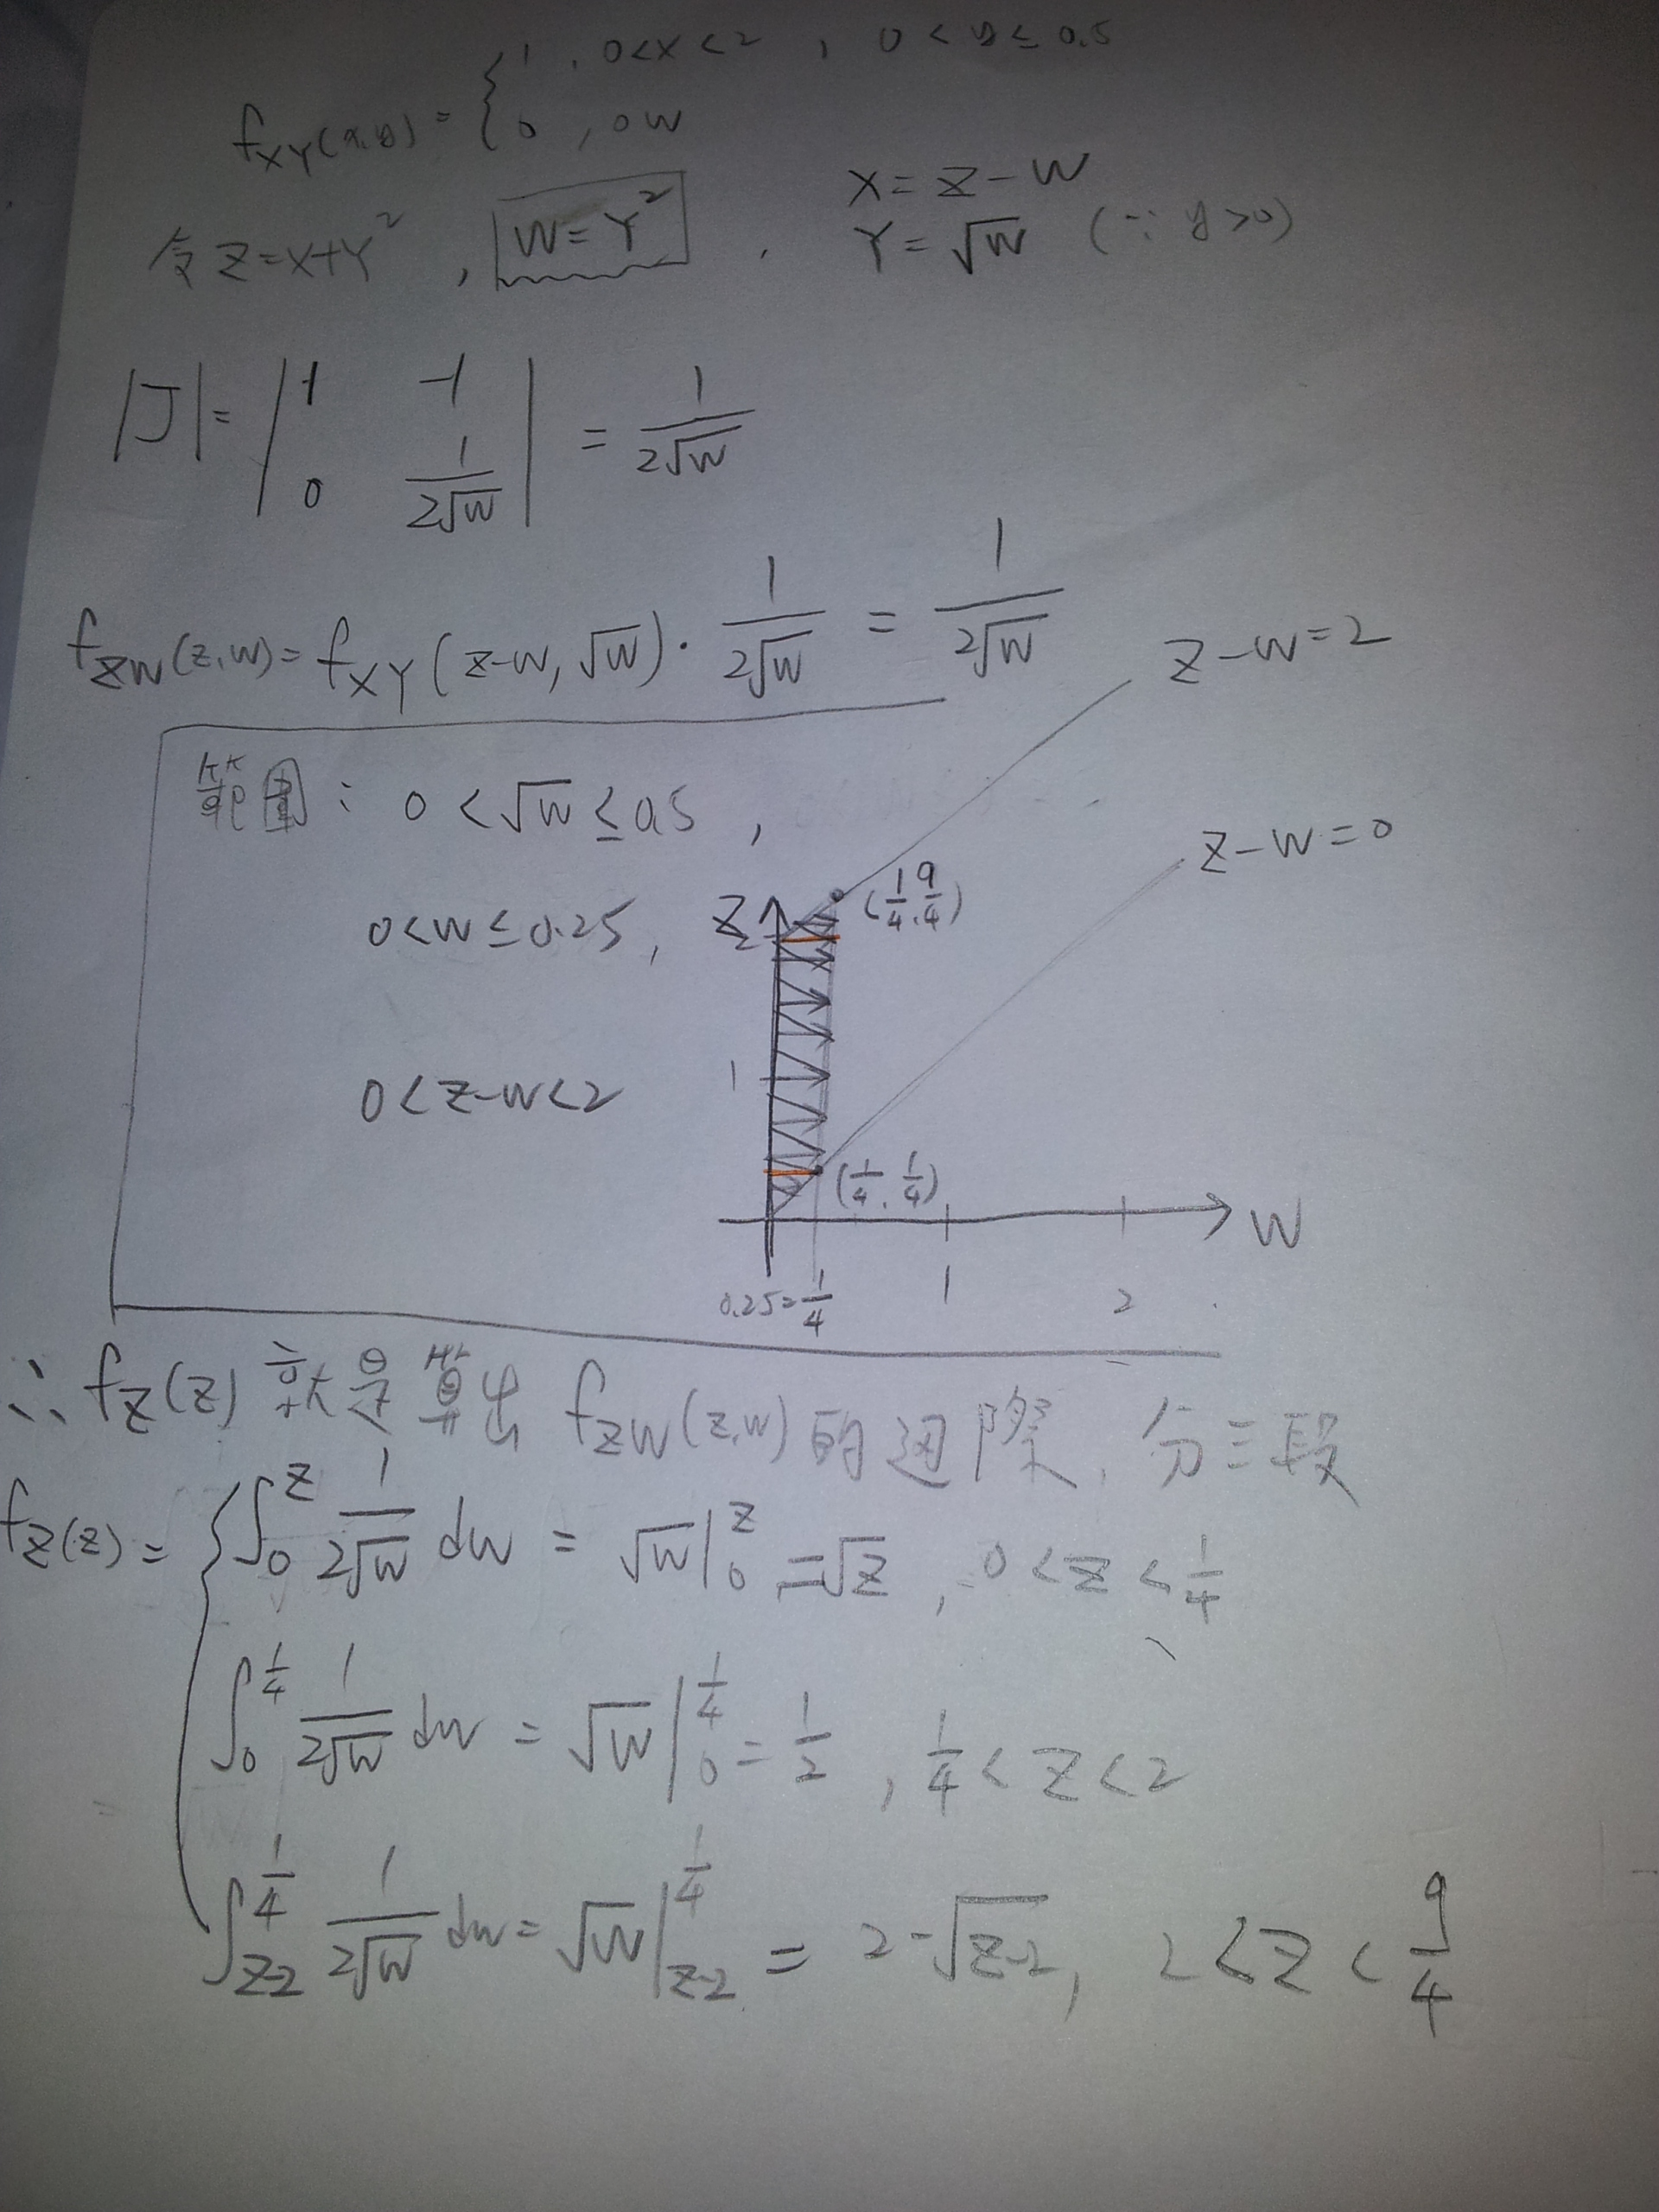 f_XY(x,y) = { 1 , 0<x<2 , 0<y≤0.5
0 , ow
令 Z=X+Y² , W=Y² , X=Z-W
Y=√W (∵ y>0)
|J|= | 1 -1 | = 1/(2√W)
| 0 1/(2√W) |
f_ZW(z,w)= f_XY(z-w, √w) · 1/(2√w) = 1/(2√w)
z-w=2
範圍: 0<√w≤0.5 ,
z-w=0
(1/4, 9/4)
0<w≤0.25 ,
Z
2
0<z-w<2
1
(1/4, 1/4)
W
0.25=1/4 1 2
∴ f_Z(z) 就是算出 f_ZW(z,w) 的邊際, 分三段
f_Z(z) = { ∫_0^z 1/(2√w) dw = √w |_0^z =√z , 0<z<1/4
∫_0^{1/4} 1/(2√w) dw = √w |_0^{1/4} = 1/2 , 1/4<z<2
∫_{z-2}^{1/4} 1/(2√w) dw = √w |_{z-2}^{1/4} = 2-√(z-2) , 2<z<9/4